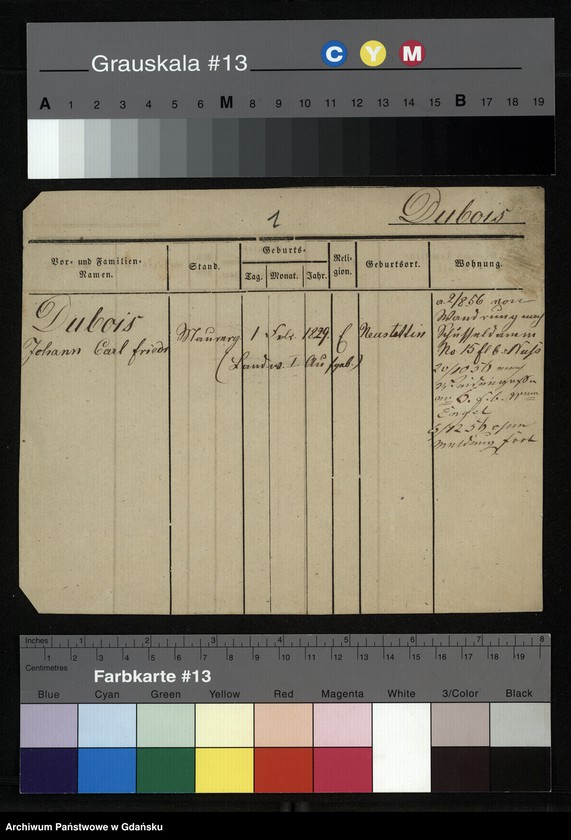 Grauskala #13
C Y M
A 1 2 3 4 5 6 M 8 9 10 11 12 13 14 15 B 17 18 19
1
Dubois
Vor- und Familien-Namen.
Stand.
Geburts-
Tag. Monat. Jahr.
Reli-gion.
Geburtsort.
Wohnung.
Dubois
Johann Carl Friedr
Maurerg 1 Febr 1829. E Neustettin
(Landw. I Aufgeb.)
a. 2/8 56 von
Wandrung nach
Schüsseldamm
No 15 bei Nuss
20/10 56 nach
an
Engel
12 56 ohne
Meldung fort
Inches 1 2 3 4 5 6 7 8
1 2 3 4 5 6 7 8 9 10 11 12 13 14 15 16 17 18 19
Centimetres
Farbkarte #13
Blue Cyan Green Yellow Red Magenta White 3/Color Black
Archiwum Państwowe w Gdańsku